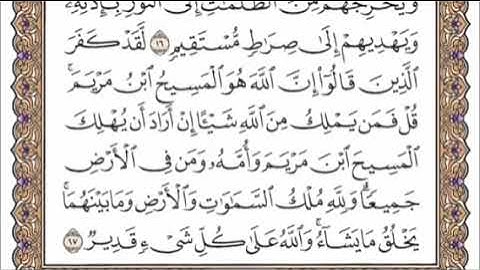 وَيُخْرِجُهُم مِّنَ ٱلظُّلُمَٰتِ إِلَى ٱلنُّورِ بِإِذْنِهِۦ
وَيَهْدِيهِمْ إِلَىٰ صِرَٰطٍ مُّسْتَقِيمٍ ١٦ لَّقَدْ كَفَرَ
ٱلَّذِينَ قَالُوٓا۟ إِنَّ ٱللَّهَ هُوَ ٱلْمَسِيحُ ٱبْنُ مَرْيَمَ ۚ
قُلْ فَمَن يَمْلِكُ مِنَ ٱللَّهِ شَيْـًٔا إِنْ أَرَادَ أَن يُهْلِكَ
ٱلْمَسِيحَ ٱبْنَ مَرْيَمَ وَأُمَّهُۥ وَمَن فِى ٱلْأَرْضِ
جَمِيعًا ۗ وَلِلَّهِ مُلْكُ ٱلسَّمَٰوَٰتِ وَٱلْأَرْضِ وَمَا بَيْنَهُمَا ۚ
يَخْلُقُ مَا يَشَآءُ ۚ وَٱللَّهُ عَلَىٰ كُلِّ شَىْءٍ قَدِيرٌ ١٧